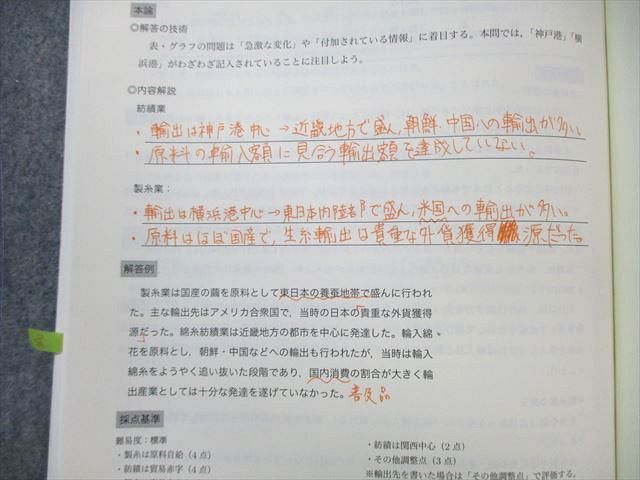 本論
◎解答の技術
表・グラフの問題は「急激な変化」や「付加されている情報」に着目する。本問では，「神戸港」「横
浜港」がわざわざ記入されていることに注目しよう。
◎内容解説
紡績業
・輸出は神戸港中心→近畿地方で盛ん，朝鮮・中国への輸出が多い。
・原料の輸入額に見合う輸出額を達成していない。
製糸業：
・輸出は横浜港中心→東日本内陸部で盛ん，米国への輸出が多い。
・原料はほぼ国産で，生糸輸出は貴重な外貨獲得源だった。
解答例
製糸業は国産の繭を原料として東日本の養蚕地帯で盛んに行われ
た。主な輸出先はアメリカ合衆国で，当時の日本の貴重な外貨獲得
源だった。綿糸紡績業は近畿地方の都市を中心に発達した。輸入綿
花を原料とし，朝鮮・中国などへの輸出も行われたが，当時は輸入
綿糸をようやく追い抜いた段階であり，国内消費の割合が大きく輸
出産業としては十分な発達を遂げていなかった。普及品
採点基準
難易度：標準
・製糸は原料自給（4点）
・紡績は貿易赤字（4点）
・紡績は関西中心（2点）
・その他調整点（3点）
※輸出先を書いた場合は「その他調整点」で評価する。